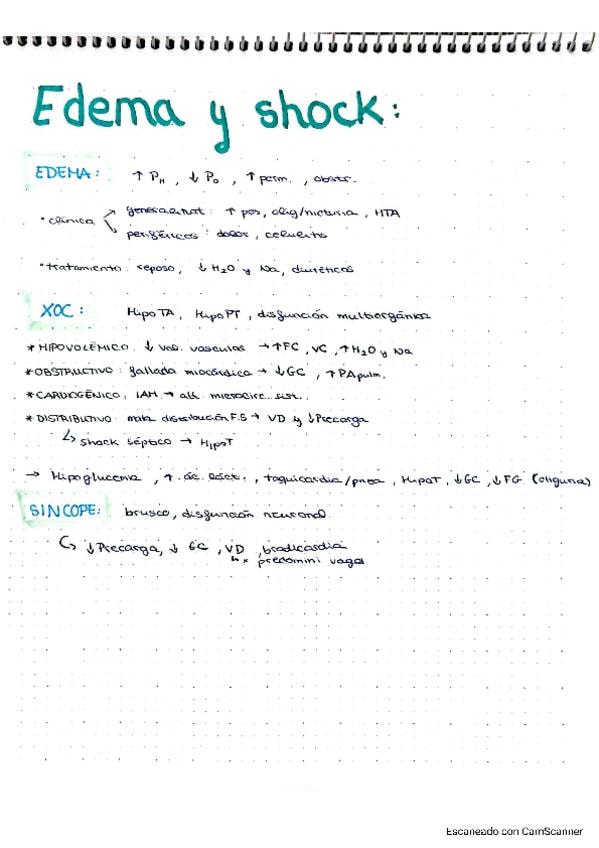 Edema y shock:
EDEMA: ↑ PH, ↓ PO, ↑ perm., obstr.
• clínica
generalitzat: ↑ pes, olig/nicturia, HTA
periféricos: dolor, celulitis
• tratamiento: reposo, ↓ H2O y Na, diuréticos
XOC: HipoTA, HipoPT, disfunción multiorgánica
* HIPOVOLÉMICO: ↓ vol. vasculas → ↑FC, VC, ↑H2O y Na
* OBSTRUCTIVO: fallada miocárdica → ↓GC, ↑PApulm.
* CARDIOGÉNICO: IAH → alt. microcirc. sist.
* DISTRIBUTIVO: mala distribución F.S → VD y ↓Precarga
↳ shock séptico → HipoT
→ Hipoglucemia, ↑ ác. láct., taquicardia/pnea, HipoT, ↓GC, ↓FG (oliguria)
SINCOPE: brusco, disfunción neuronal
↳ ↓Precarga, ↓ GC, VD, bradicardia
↳ x predomini vagal
Escaneado con CamScanner